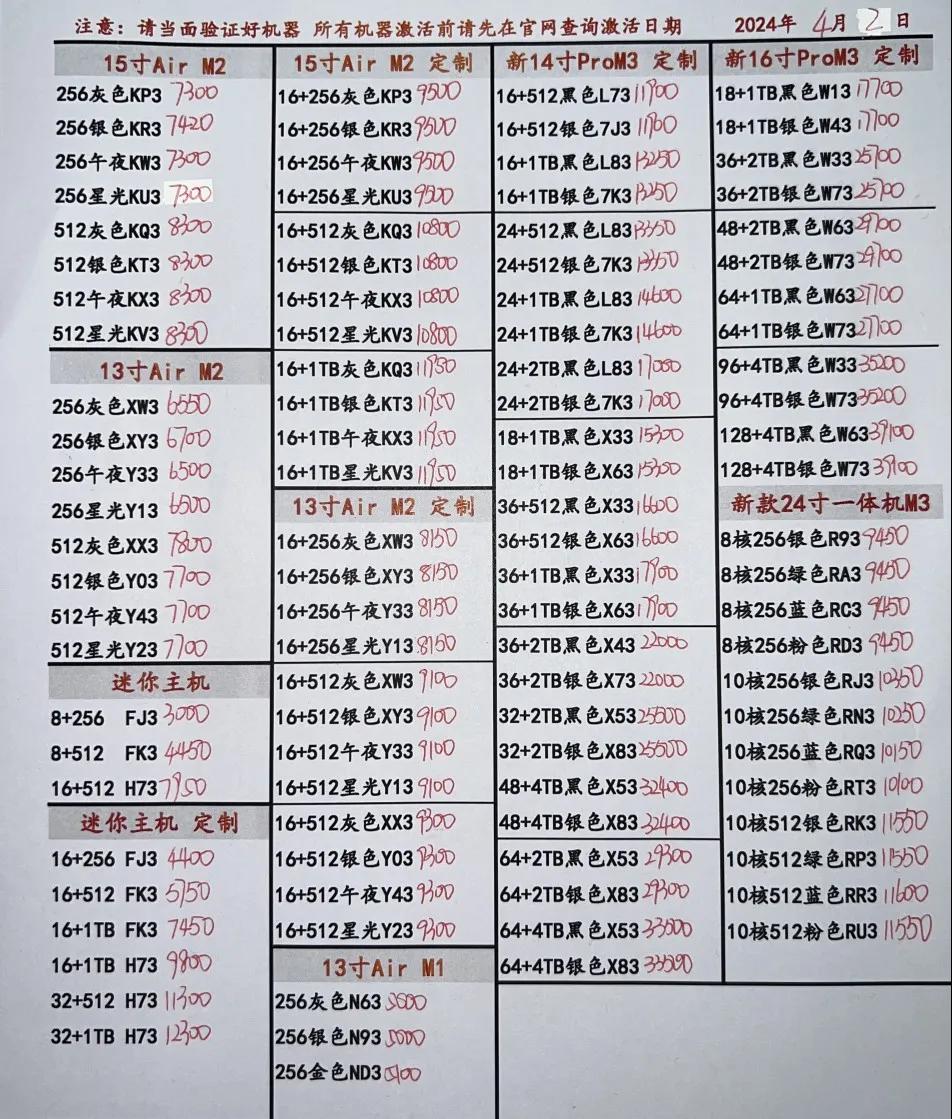 注意：请当面验证好机器 所有机器激活前请先在官网查询激活日期 2024年 4月 2日
15寸Air M2
256灰色KP3 7300
256银色KR3 7420
256午夜KW3 7300
256星光KU3 7300
512灰色KQ3 8300
512银色KT3 8300
512午夜KX3 8300
512星光KV3 8300
13寸Air M2
256灰色XW3 6550
256银色XY3 6700
256午夜Y33 6500
256星光Y13 6500
512灰色XX3 7800
512银色Y03 7700
512午夜Y43 7700
512星光Y23 7700
迷你主机
8+256 FJ3 3000
8+512 FK3 4450
16+512 H73 7950
迷你主机 定制
16+256 FJ3 4400
16+512 FK3 5750
16+1TB FK3 7450
16+1TB H73 9800
32+512 H73 11300
32+1TB H73 12300
15寸Air M2 定制
16+256灰色KP3 9500
16+256银色KR3 9500
16+256午夜KW3 9500
16+256星光KU3 9500
16+512灰色KQ3 10800
16+512银色KT3 10800
16+512午夜KX3 10800
16+512星光KV3 10800
16+1TB灰色KQ3 11950
16+1TB银色KT3 11950
16+1TB午夜KX3 11950
16+1TB星光KV3 11950
13寸Air M2 定制
16+256灰色XW3 8150
16+256银色XY3 8150
16+256午夜Y33 8150
16+256星光Y13 8150
16+512灰色XW3 9100
16+512银色XY3 9100
16+512午夜Y33 9100
16+512星光Y13 9100
16+512灰色XX3 9300
16+512银色Y03 9300
16+512午夜Y43 9300
16+512星光Y23 9300
13寸Air M1
256灰色N63
256银色N93
256金色ND3
新14寸ProM3 定制
16+512黑色L73 11900
16+512银色7J3 11900
16+1TB黑色L83 13250
16+1TB银色7K3 13250
24+512黑色L83 13350
24+512银色7K3 13350
24+1TB黑色L83 14600
24+1TB银色7K3 14600
24+2TB黑色L83 17000
24+2TB银色7K3 17000
18+1TB黑色X33 15300
18+1TB银色X63 15300
36+512黑色X33 16600
36+512银色X63 16600
36+1TB黑色X33 17900
36+1TB银色X63 17900
36+2TB黑色X43 22000
36+2TB银色X73 22000
32+2TB黑色X53 25500
32+2TB银色X83 25500
48+4TB黑色X53 32400
48+4TB银色X83 32400
64+2TB黑色X53 29300
64+2TB银色X83 29300
64+4TB黑色X53 33500
64+4TB银色X83 33500
新16寸ProM3 定制
18+1TB黑色W13 17700
18+1TB银色W43 17700
36+2TB黑色W33 25700
36+2TB银色W73 25700
48+2TB黑色W63 29700
48+2TB银色W73 29700
64+1TB黑色W63 27700
64+1TB银色W73 27700
96+4TB黑色W33 35200
96+4TB银色W73 35200
128+4TB黑色W63 39100
128+4TB银色W73 39100
新款24寸一体机M3
8核256银色R93 9450
8核256绿色RA3 9450
8核256蓝色RC3 9450
8核256粉色RD3 9450
10核256银色RJ3 10250
10核256绿色RN3 10250
10核256蓝色RQ3 10150
10核256粉色RT3 10100
10核512银色RK3 11550
10核512绿色RP3 11550
10核512蓝色RR3 11600
10核512粉色RU3 11550